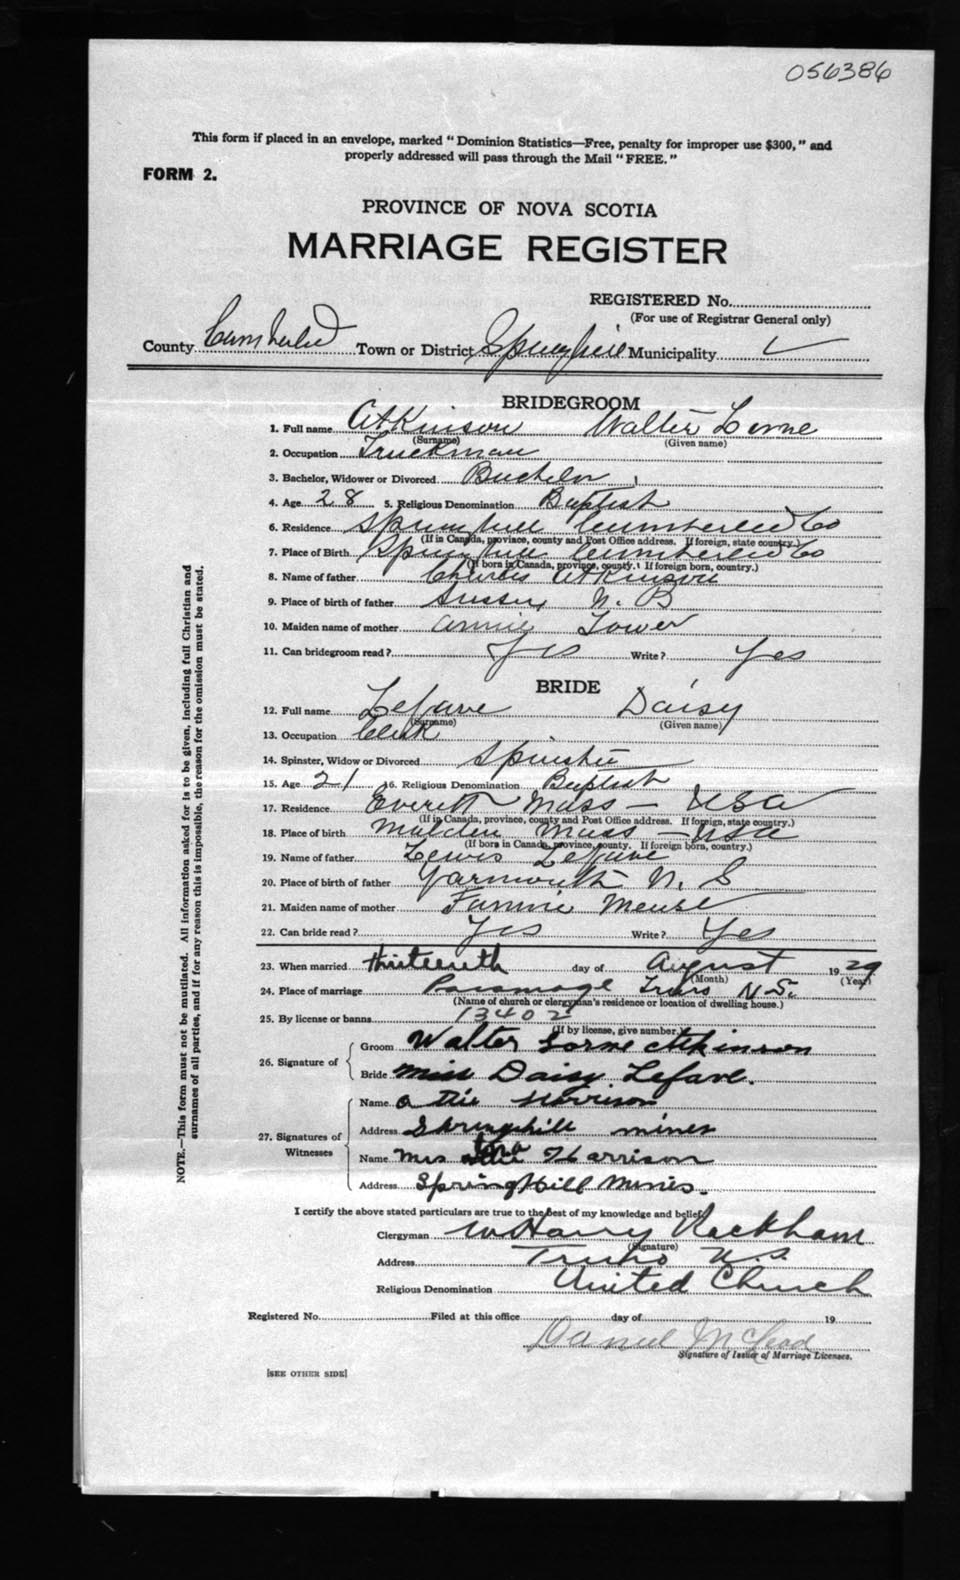 056386
This form if placed in an envelope, marked "Dominion Statistics—Free, penalty for improper use $300," and
properly addressed will pass through the Mail "FREE."
FORM 2.
PROVINCE OF NOVA SCOTIA
MARRIAGE REGISTER
REGISTERED No.
(For use of Registrar General only)
County Cumberland Town or District Springhill Municipality ✓
BRIDEGROOM
1. Full name Atkinson Walter Lorne
(Surname) (Given name)
2. Occupation Truckman
3. Bachelor, Widower or Divorced Bachelor
4. Age 28 5. Religious Denomination Baptist
6. Residence Springhill Cumberland Co
(If in Canada, province, county and Post Office address. If foreign, state country.)
7. Place of Birth Springhill Cumberland Co
(If born in Canada, province, county. If foreign born, country.)
8. Name of father Charles Atkinson
9. Place of birth of father Sussex N. B
10. Maiden name of mother Annie Tower
11. Can bridegroom read? Yes Write? Yes
BRIDE
12. Full name LeFave Daisy
(Surname) (Given name)
13. Occupation Clerk
14. Spinster, Widow or Divorced Spinster
15. Age 21 16. Religious Denomination Baptist
17. Residence Everett Mass — USA
(If in Canada, province, county and Post Office address. If foreign, state country.)
18. Place of birth Malden Mass — USA
(If born in Canada, province, county. If foreign born, country.)
19. Name of father Lewis LeFave
20. Place of birth of father Yarmouth N. S
21. Maiden name of mother Fannie Meuse
22. Can bride read? Yes Write? Yes
23. When married thirteenth day of August 1929
(Month) (Year)
24. Place of marriage Parsonage Truro N.S.
(Name of church or clergyman's residence or location of dwelling house.)
25. By license or banns 13402
(If by license, give number)
26. Signature of Groom Walter Lorne Atkinson
Bride Miss Daisy Lefave.
27. Signatures of Witnesses
Name Harrison
Address Springhill mines
Name Mrs Harrison
Address SpringHill Mines.
I certify the above stated particulars are true to the best of my knowledge and belief.
Clergyman W Harry Rackham
(Signature)
Address Truro N.S
Religious Denomination United Church
Registered No. Filed at this office day of 19
Daniel McLeod
Signature of Issuer of Marriage Licenses.
[SEE OTHER SIDE]
NOTE.—This form must not be mutilated. All information asked for is to be given, including full Christian and
surnames of all parties, and if for any reason this is impossible, the reason for the omission must be stated.